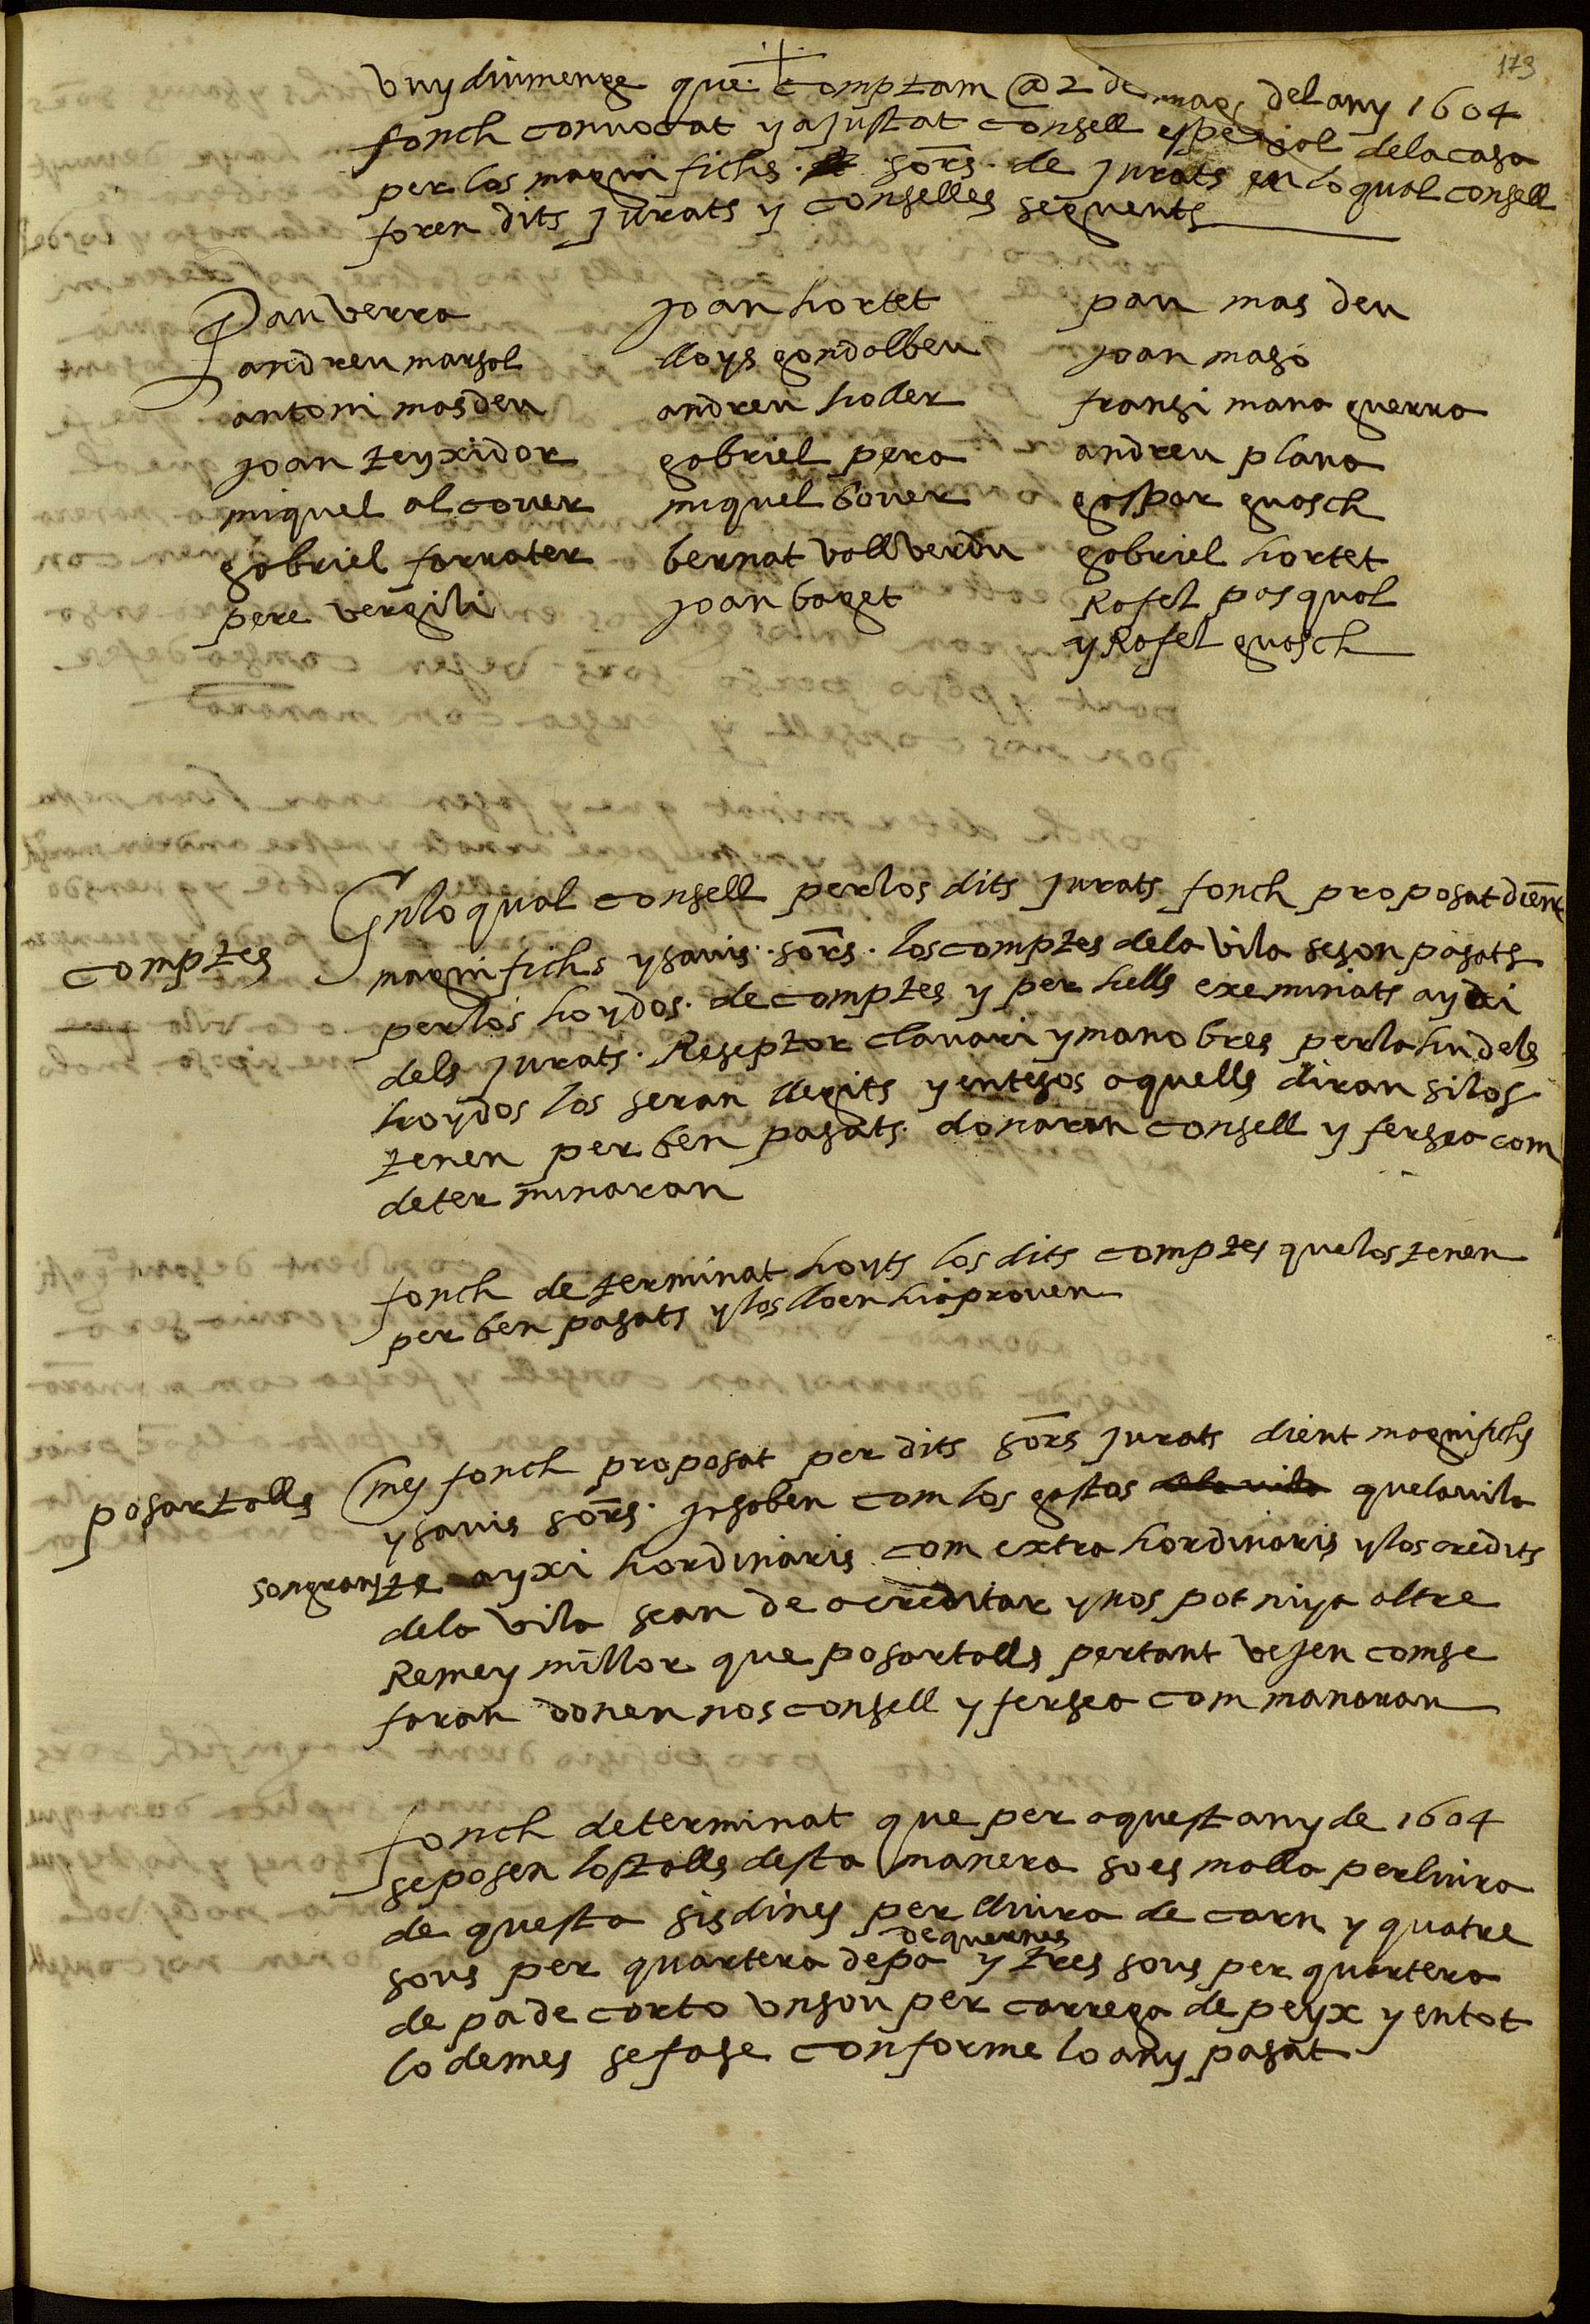 173
vuy diumenge que comptam @ 2 de mag del any 1604
fonch convocat y ajustat consell espesial de la casa
per los magnifichs sors de jurats en lo qual consell
foren dits jurats y conselles seguents
Pau verra
andreu marsol
antoni masdeu
joan teyxidor
miquel alcover
gabriel ferrater
pere vergili
joan hortet
lloys gondolbeu
andreu holler
gabriel pera
miquel bover
bernat vallverdu
joan baget
pau mas deu
joan maso
fransi mana guerra
andreu plana
gaspar guasch
gabriel hortet
Rafel pasqual
y Rafel guasch
comptes
En lo qual consell per los dits jurats fonch proposat dient
magnifichs y savis sors los comptes de la vila se son pasats
per los hoydos de comptes y per hells exeminats ayxi
dels jurats Reseptor clavari y manobres per la hu dels
hoydos los seran llegits y entesos aquells diran si los
tenen per ben pasats donaran consell y fersea com
determinaran
fonch determinat hoyts los dits comptes que los tenen
per ben pasats y los lloen hi aproven
posar talls
mes fonch proposat per dits sors jurats dient magnifichs
y savis sors ja saben com los gastos de la vila que la vila
te son grans ayxi hordinaris com extrahordinaris y los credits
de la vila sean de acreditar y nos pot niya altre
Remey millor que posar talls per tant vejen com se
faran donen nos consell y fersea com manaran
fonch determinat que per aquest any de 1604
se posen los talls desta manera so es malla per liura
de questa sis dines per lliura de carn y quatre
de quernes
sous per quartera de pa y tres sous per quartera
de pa de corto un sou per carrega de peyx y en tot
lo demes se fase conforme lo any pasat